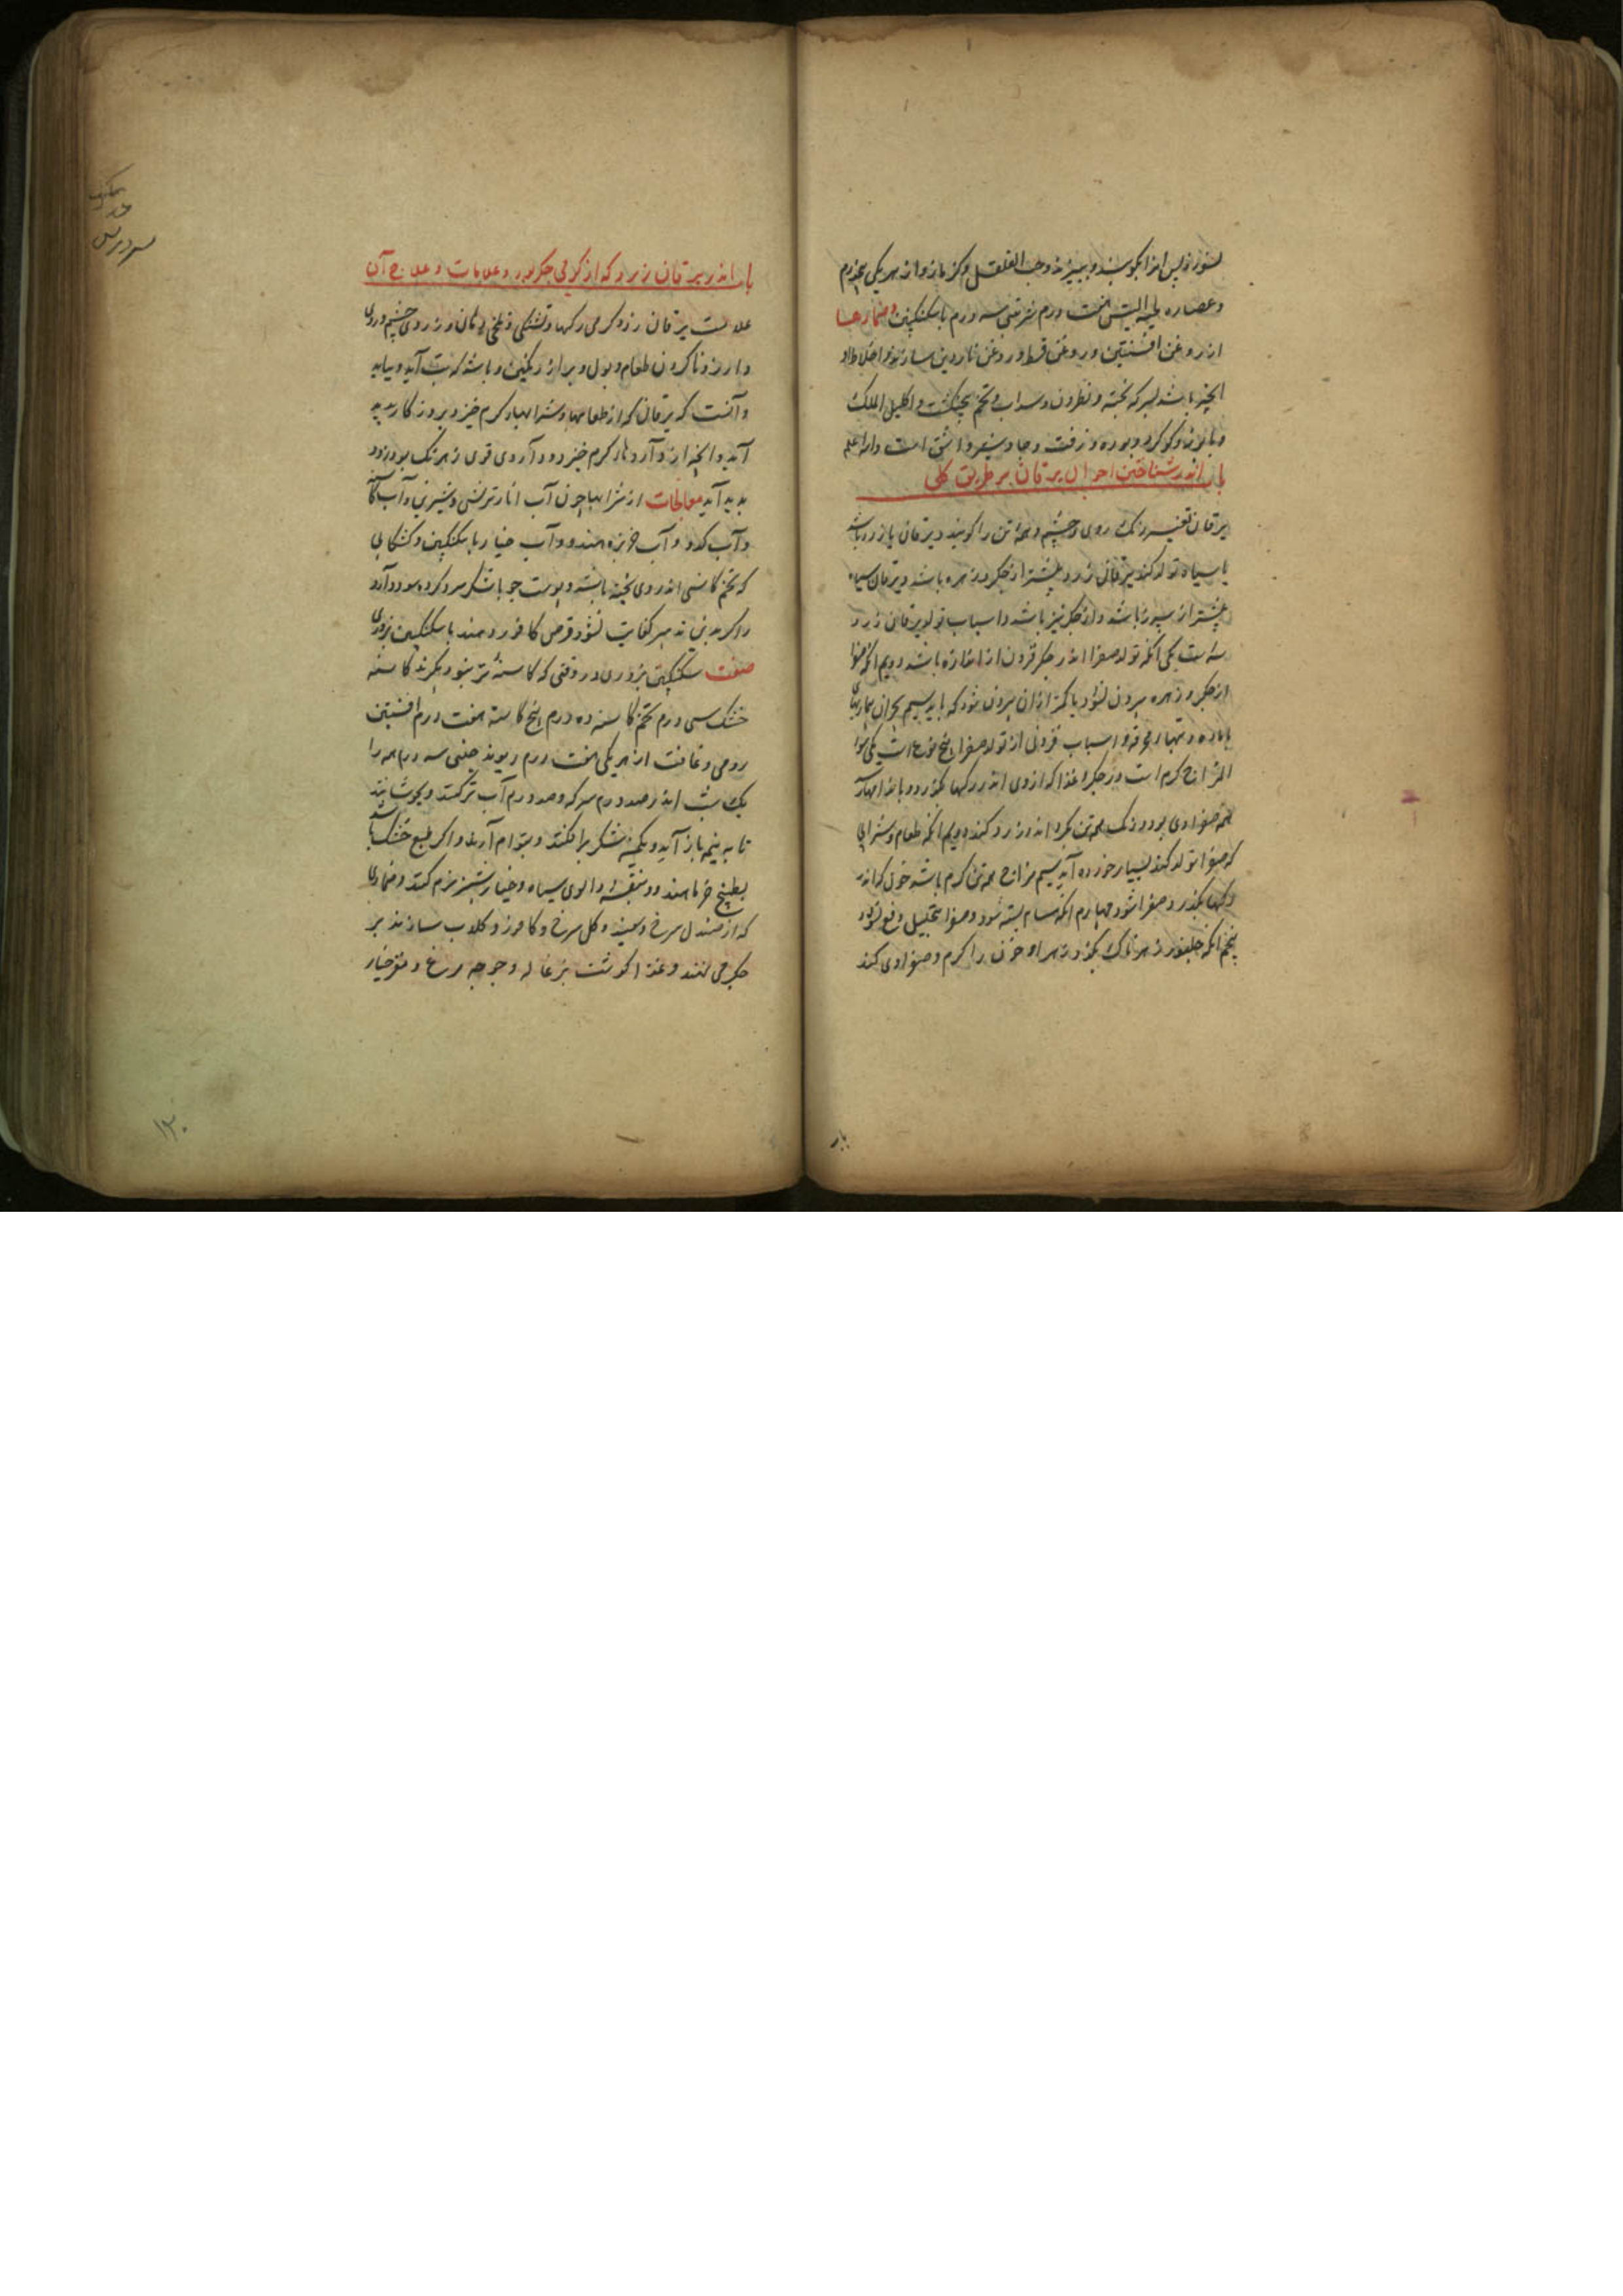 و عصاره لحیة التیس هفت درم شربتی سه درم با سکنکبین ضمادها
از روغن افسنتین و روغن قسط و روغن ناردین سازند و اخلاط او
انجیر باشد بسرکه پخته و نطرون و سداب و تخم پنجنکشت و اکلیل الملک
و بابونه و کوکرد و بوره و زفت و جاوشیر و اشق است والله اعلم
باب اندر شناختن احوال یرقان بر طریق کلی
یرقان تغییر رنک روی و چشم و همه تن را کویند و یرقان یا زرد باشد
یا سیاه تولد کند یرقان زرد بیشتر از جکر و زهره باشد و یرقان سیاه
بیشتر از سپرز باشد و از جکر نیز باشد و اسباب تولد یرقان زرد
سه است یکی انکه تولد صفرا اندر جکر فزون از اندازه باشد دویم انکه صفرا
از جکر و زهره بیرون نشود یا کمتر از ان بیرون شود که باید سیم بحران بیماریهای
و اسباب فزونی از تولد صفرا پنج نوع است یکی سوء
المزاج کرم است در جکر و غذا که از وی اندر رکها بکذرد و باندامها رسد
همه صفراوی بود و رنک همه تن بکرداند و زرد کند دویم انکه طعام و شرابی
که صفرا تولد کند بسیار خورده آید سیم مزاج همه تن کرم باشد خون که اندر
رکها بکذرد صفرا شود چهارم انکه مسام بسته شود و صفرا بتحلیل دفع نشود
پنجم انکه جانور زهرناک بکزد و زهر او خون را کرم و صفراوی کند
باب اندر یرقان زرد که از کرمی جکر بود و علامات و علاج آن
علامت یرقان زرد کرمی رکها و تشنکی و تلخی دهان و زردی چشم و روی
و آرزو ناکردن طعام و بول و براز رنکین و باشد که تب آید و نیاید
و آنست که یرقان که از طعامها و شرابها کرم خیزد بروزکار پدید
آید و انچه از داروهای کرم خیزد و داروی قوی زهرناک بود زود
پدید آید معالجات از شرابها چون آب انار ترش و شیرین و آب
و آب کدو و آب خربزه هندو و آب خیار با سکنکبین و کشکابی
که تخم کاسنی اندر وی پخته باشند و پوست جو با شکر سرد کرده سود دارد
و اکر بدین تدبیر کفایت نشود قرص کافور دهند با سکنکبین بزوری
صفت سکنکبین بزوری در وقتی که کاسنه تر نبود بکیرند کاسنه
خشک سی درم تخم کاسنه ده درم بیخ کاسنه هفت درم افسنتین
رومی و غافت از هر یکی هفت درم ریوند چینی سه درم همه را
یک شب اندر صد درم سرکه و صد درم آب تر کنند و بجوشانند
تا به نیمه باز آید و یکمن شکر برافکنند و بقوام آرند و اکر طبع خشک باشد
بطبیخ خرما هندو و بنفشه و آلوی سیاه و خیارشنبر نرم کنند و ضمادی
که از صندل سرخ و سپید و کل سرخ و کافور و کلاب سازند بر
جکر می نهند و غذا کوشت بزغاله و جوجه مرغ و مغز خیار
۱۲۰